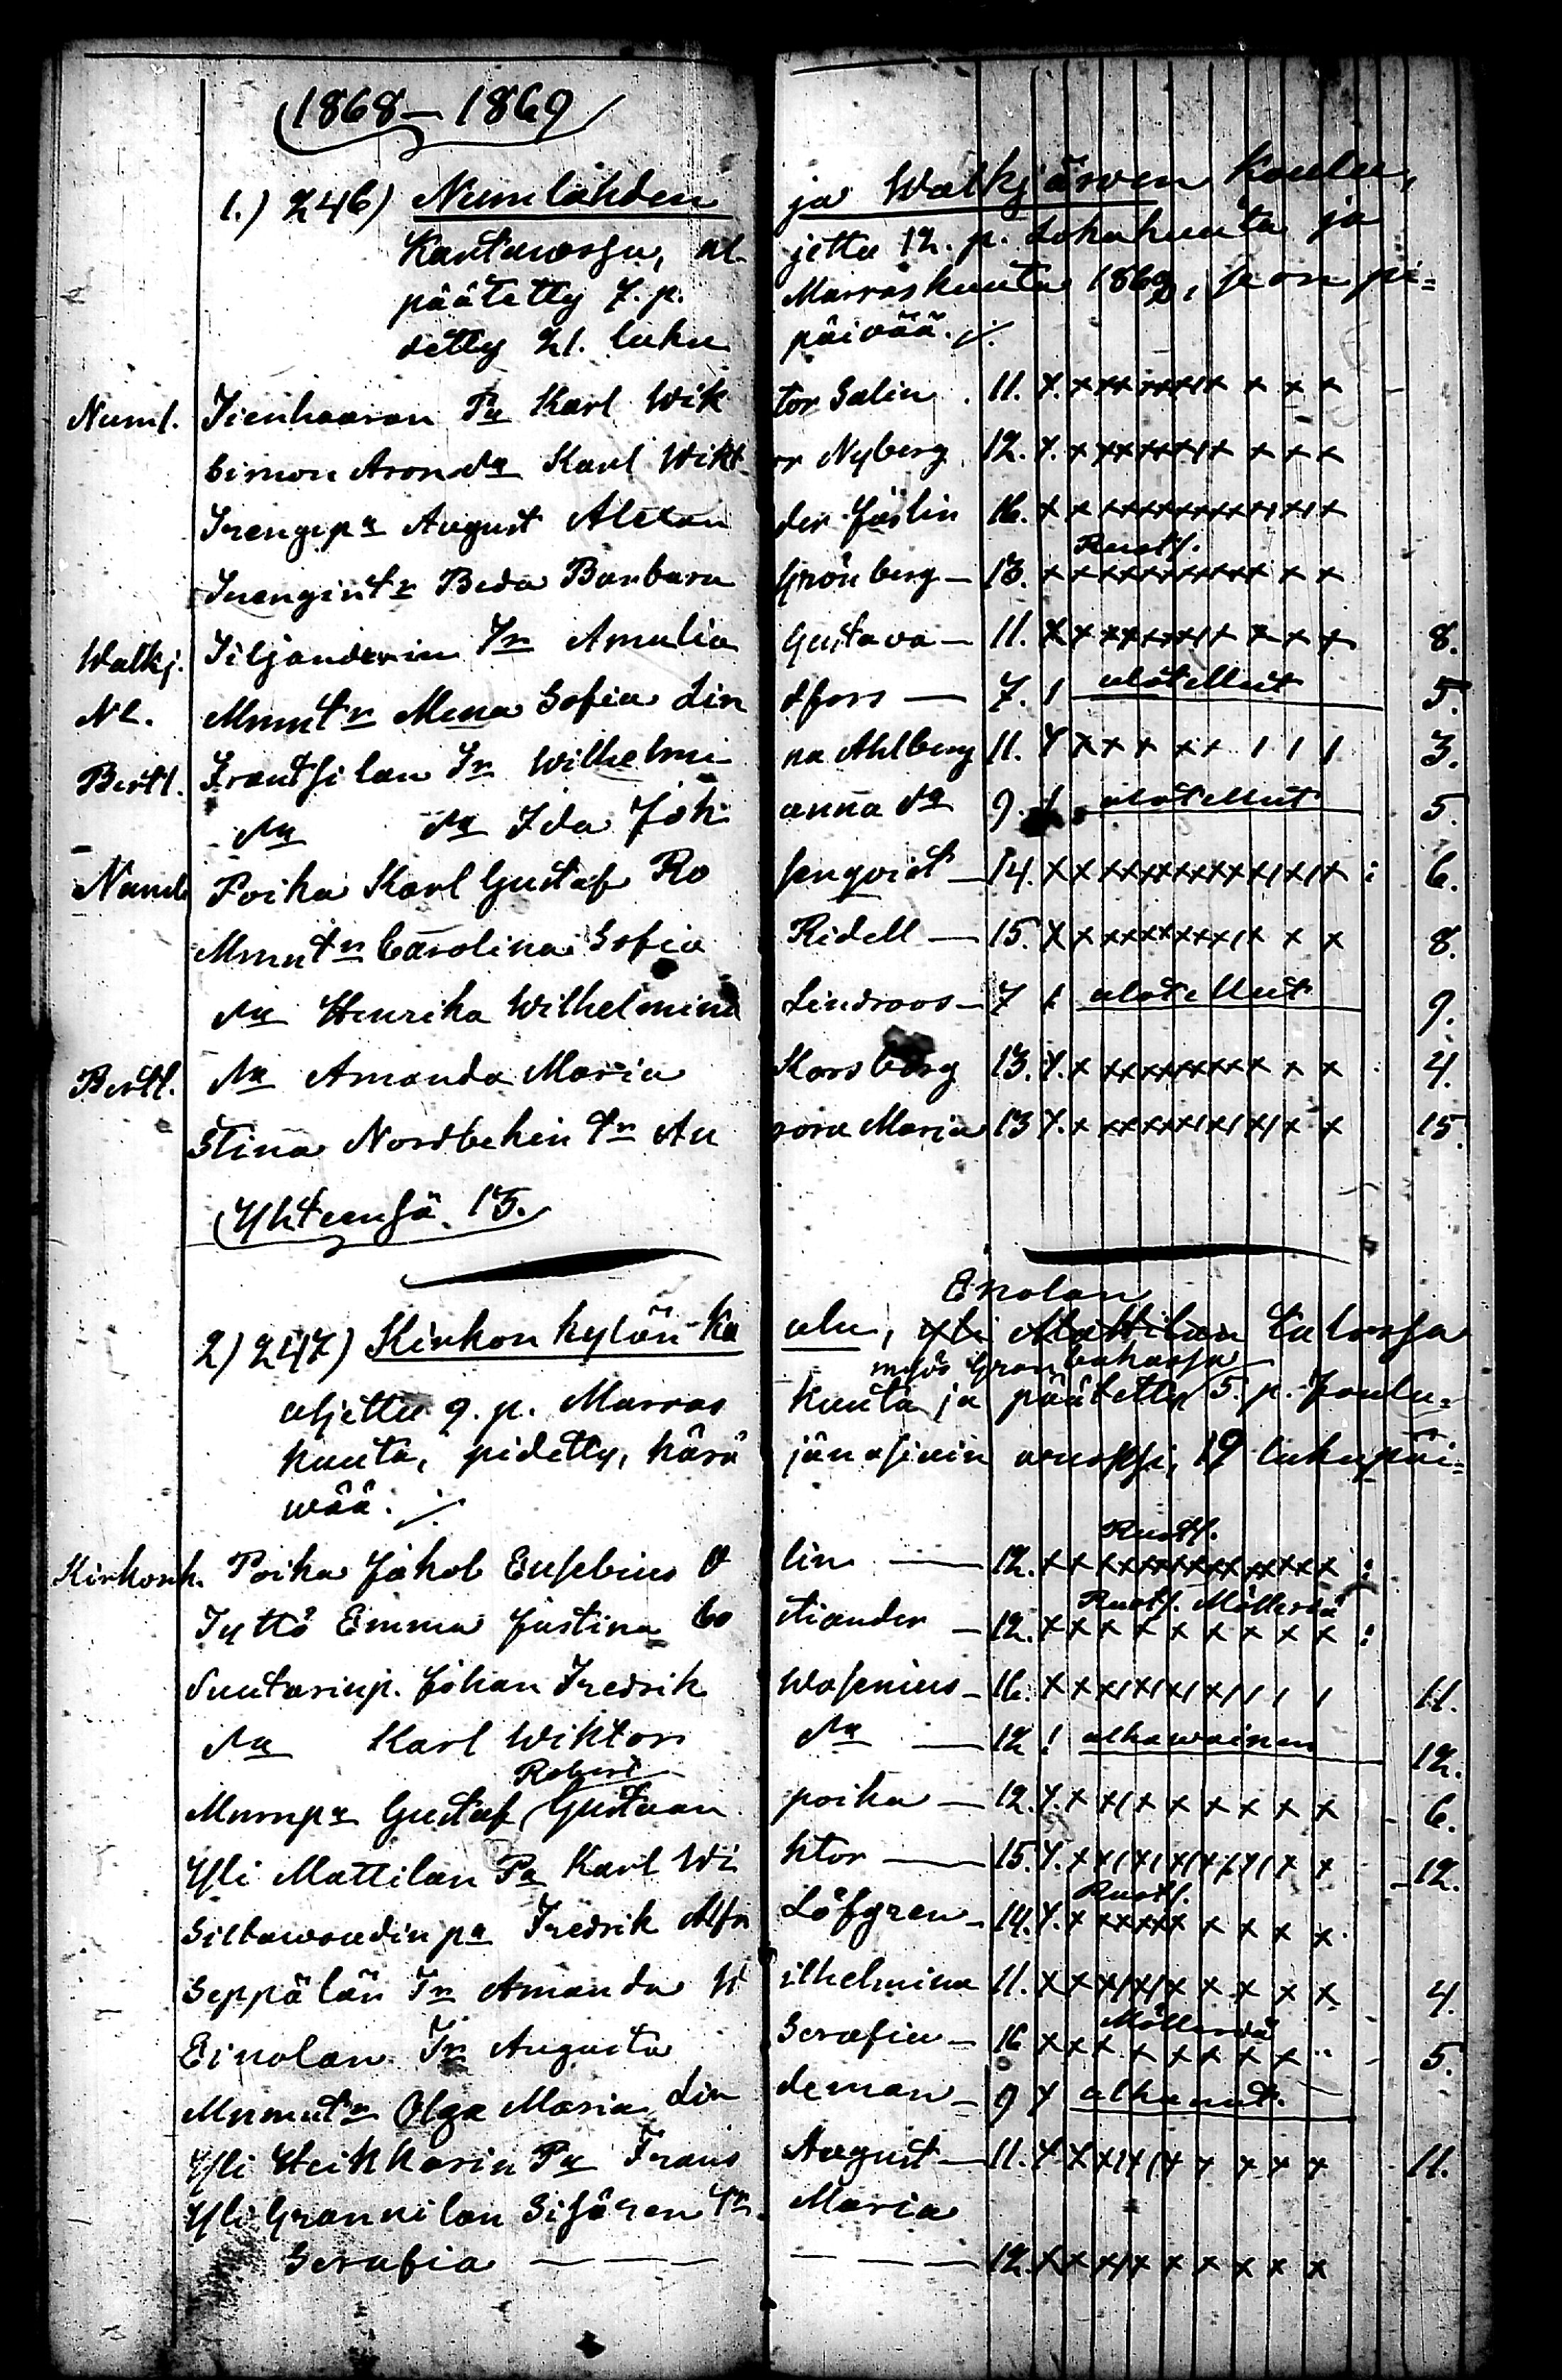 1868–1869
1.) 246) Numlahden ja Walkjärwen Koulu,
Kartanossa, al- jettu 12. p. Lokakuuta ja
päätetty 7. p. Marraskuuta 1868, se on pi=
detty 21. luku päivää. ⁒
Numl. Jienhaaran Pa Karl Wik tor Salin . 11. x. x xx xxxxx x x x
Simon Aron da Karl Wikt or Nyberg 12. x. x xxxxxxxx x x x
Trengipa August Alexan der Joslin 16. x x xxxxxxxxxxxxx
Rust/.
Trengintr Beda Barbara Grönberg – 13. x x xxxxxxxxx x x
Walkj. Siljanderin Tr Amalia Gustava – 11. x x xxxxxxx x x x 8.
Nl. Mmmtr Mena Sofia Lin dfors — 7. / alotellut 5.
Bertl. Frantsilan Tr Wilhelmi na Ahlberg 11. x x x x x x / / / 3.
da da Ida Joh anna da 9. / alotellut 5.
Numl. Poika Karl Gustaf Ro senqvist – 14. x x xxxxxxxxx/x/x : 6.
Mmmtr Carolina Sofia Ridell — 15. x x xxxxxxx/x x x 8.
da Henrika Wilhelmina Lindroos – 7 / alotellut 9.
Bertl. da Amanda Maria Korsberg 13. x. x xxxxxxxxx x x 4.
Stina Nordbekin tr Au rora Maria 13 x. x xxxxxx/x/x/x x 15.
Yhteensä. 13.
Enolan
2) 247) Kirkonkylän Ko ulu, Yli Mattilan talossa
myös Gran
aljettu 9. p. Marras kuuta ja päätetty 5. p. Joulu=
kuuta, pidetty, kärä jän asiain 19 lukupäi=
wää. ⁒
Rust/.
Kirkonk. Poika Jakob Eusebius O lin — 12. x x xxxxxxxxxxxx :
Rust/. Möllersiä
Tyttö Emma Justina Co stiander – 12. x x x x x x x x x :
Suutarinp. Johan Fredrik Wasenius – 16. x x x/x/x/x/ / / / 11.
da Karl Wiktor da — 12 ! alkawainen 12.
Robert
Mmmpa Gustaf Gustaan poika — 12. x. x x/x x x x x x 6.
Yli Mattilan Pa Karl Wi ktor — 15. x. x x/x/x/x/x/x x 12.
Rust/.
Siltawoudin pa Fredrik Alfr Löfgren – 14. x. x xxxxx x x x x
Seppälän Tr Amanda W ilhelmina 11. x x x/x/x x x x x 4.
Möllersiä
Einolan Tr Augusta Serafia – 16 x x x x x x x x 5.
Mmmtr Olga Maria Lin deman – 9 x alkanut.
Yli Heikkarin Pa Frans August – 11. x x x/x/x x x x x 11.
Yli Grannilan Sisären tr. Maria
Serafia — — — — — — 12. x x x/x x x x x x